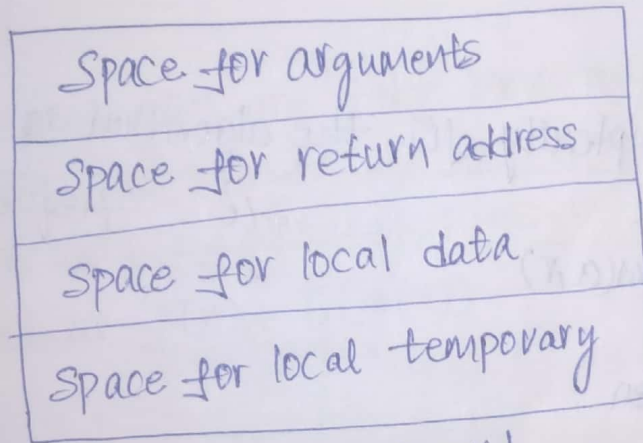 Space for arguments
Space for return address
Space for local data
Space for local temporary